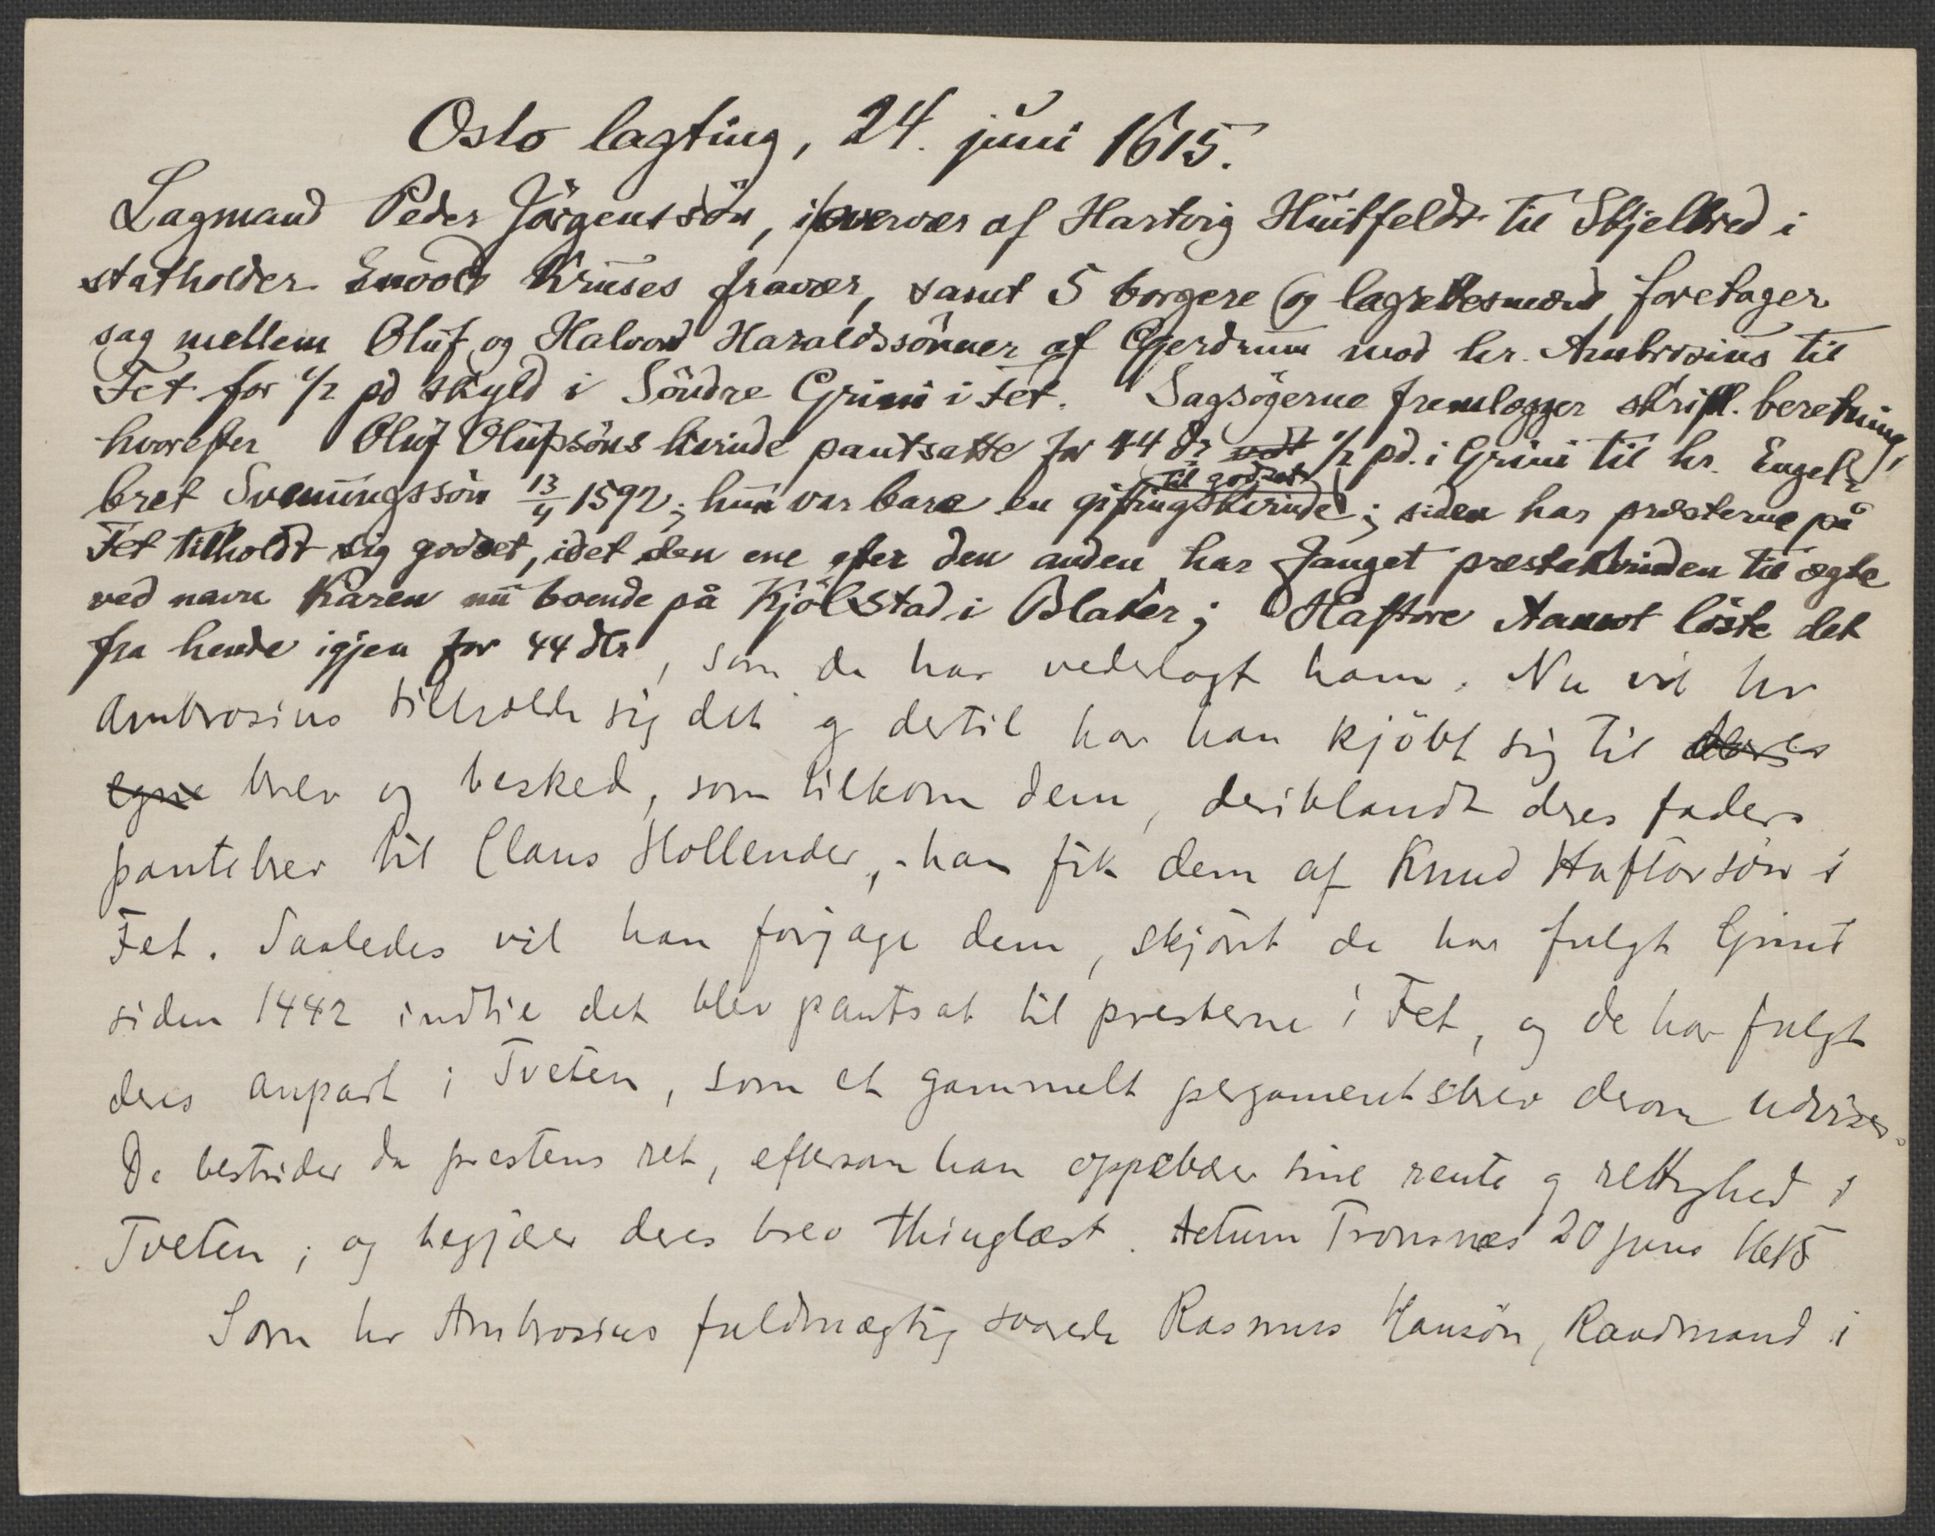 Oslo lagting, 24. juni 1615.
Lagmand Peder Jörgenssön, i overvær af Hartvig Huitfeldt til Skjelbred i
statholder Envold Kruses fravær, samt 5 borgere og lagrettesmænd foretager
sag mellem Oluf og Halvord Haraldssönner af Gjerdrum mod hr. Ambrosius til
Fet for 1/2 pd skyld i Söndre Grini i Fet. Sagsögerne fremlægger skriftl. beretning,
hvorefter Oluf Olufsöns kvinde pantsatte for 44 dr ~~udt~~ 1/2 pd. i Grini til hr. Engel-
bret Svenungssön 13/4 1592; hun var bare en giftingskvinde til godset; siden har præsterne på
Fet tilholdt sig godset, idet den ene efter den anden har fanget præstekvinden til ægte
ved navn Karen nu boende på Kjölstad i Blaker; Haftore Aamot löste det
fra hende igjen for 44 dlr, som de har vederlagt ham. Nu vil hr
Ambrosius tilholde sig det og dertil har han kjöbt sig til ~~deres~~
~~egne~~ brev og besked, som tilkom dem, deriblandt deres faders
pantebrev til Claus Hollender, han fik dem af Knud Haftorsön i
Fet. Saaledes vil han forjage dem, skjönt de har fulgt Grini
siden 1442 indtil det blev pantsat til presterne i Fet, og de har fulgt
deres anpart i Tveten, som et gammelt pergamentsbrev derom udviser.
De bestrider da prestens ret, eftersom han oppebær sine rente og rettighed i
Tveten; og begjærer deres brev thinglæst. Actum Tronsnæs 20 juni 1615
Som hr Ambrosius fuldmægtig svarede Rasmus Hansön, Raadmand i